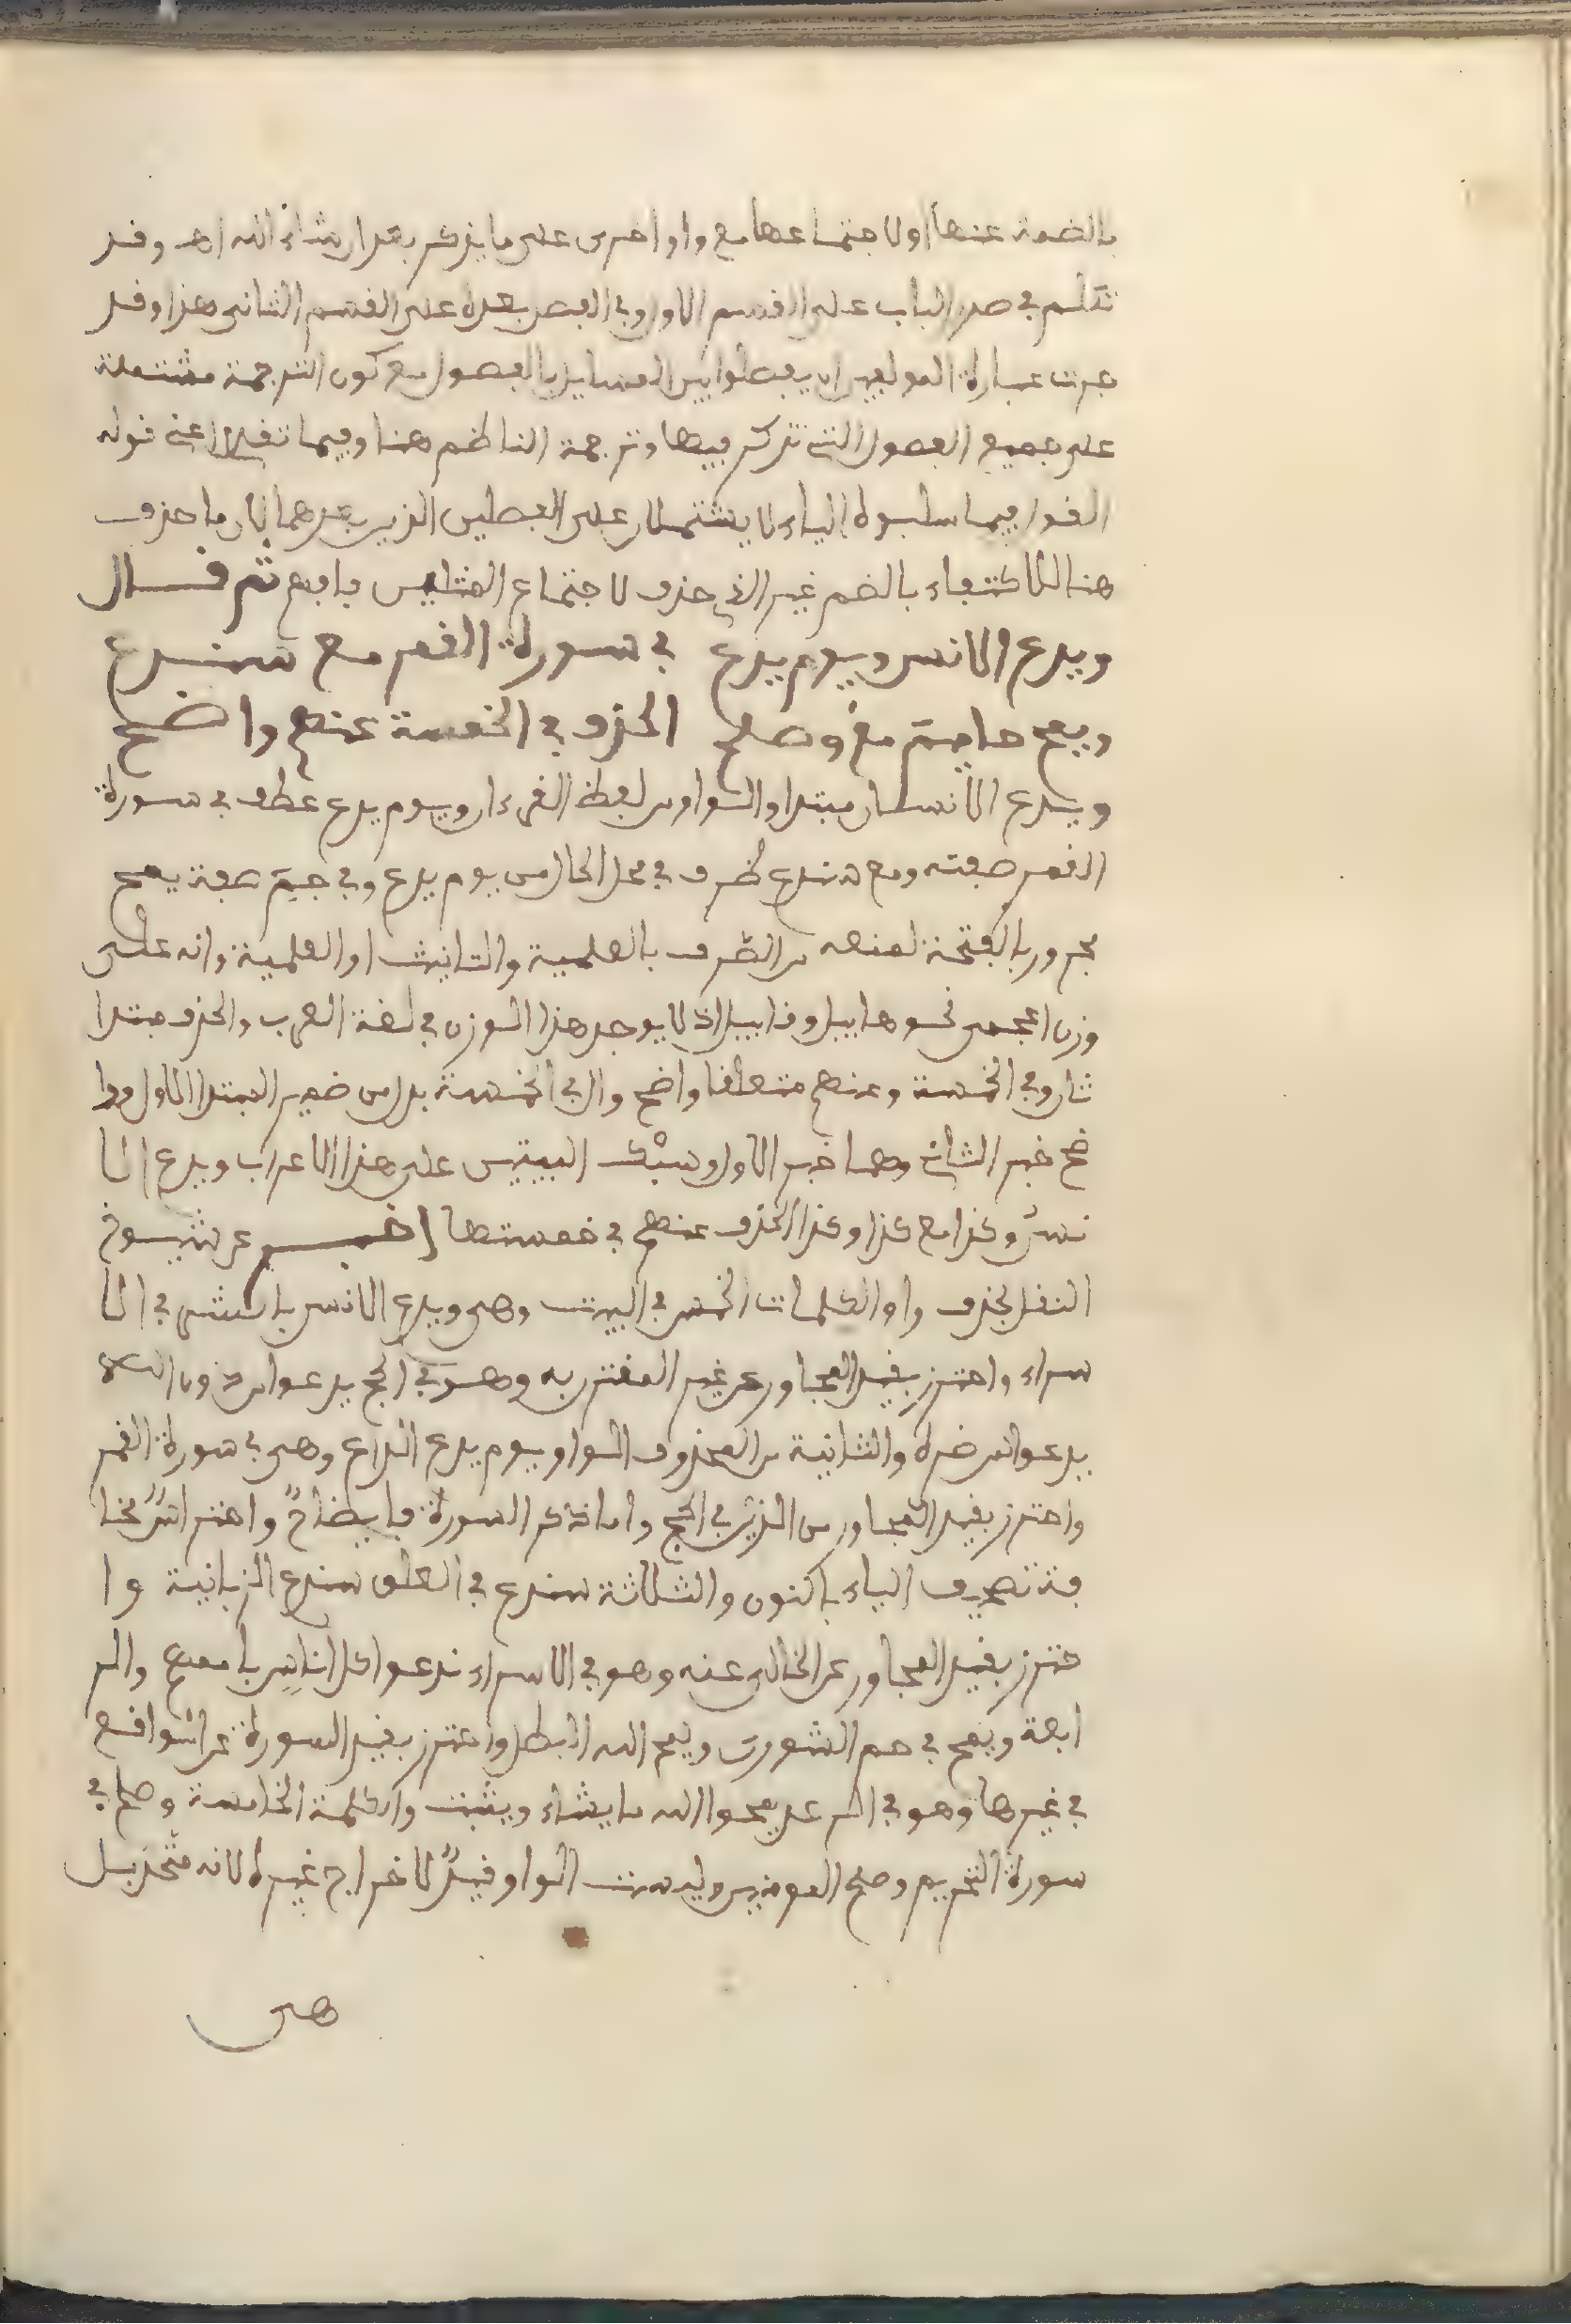 بالضمة عنها اولاجتماعها مع واو اخرى على ما يذكر بعد ان شاء الله اهـ وقد
تقدم في صدر الباب على القسم الاول وفي الفصل بعده على القسم الثاني هذا وقد
جرت عبارة المولفين ان يفصلوا بين المسايل بالفصول مع كون الترجمة مشتملة
على جميع الفصول التي تذكر فيها وترجمة الناظم هنا وفيما تقدم اعني قوله
القول فيما سلبوه الياء لا يشتملان على الفصلين الذين بعدهما لان ما حذف
هنا للاكتفاء بالضم غير الذي حذف لاجتماع المثلين فافهم ثم قال
ويدع الانسن ويوم يدع في سورة القمر مع سندع
ويمح حاميم مع وصلح الحذف في الخمسة عنهم واضح
ويدع الانسان مبتدا والواو من لفظ القرءان ويوم يدع عطف في سورة
القمر صفته ومع سندع ظرف في محل الحال من يوم يدع وفي حميم صفة يمح
مجرور بالفتحة لمنعه من الصرف بالعلمية والتانيث او العلمية وانه على
وزن اعجمي نحو هابيل وقابيل اذ لا يوجد هذا الوزن في لغة العرب والحذف مبتدا
ثان وفي الخمسة وعنهم متعلقا واضح وال في الخمسة بدل من ضمير المبتدا الاول وا
ضح خبر الثاني وهما خبر الاول وسبك البيتين على هذا الاعراب ويدع الا
نسن وكذا مع كذا وكذا الحذف عنهم في خمستها اخبر عن شيوخ
النقل بحذف واو الكلمات الخمس في البيت وهي ويدع الانسن بالشر في الا
سراء واحترز بقيد المجاور عن غير المقترن به وهو في الحج يدعوا من دون الله
يدعوا لمن ضره والثانية من المحذوف الواو يوم يدع الداع وهي في سورة القمر
واحترز بقيد المجاور من الذين في الحج واما ذكر السورة فايضاح واحتراس مخا
فة تصحيف الياء بالنون والثالثة سندع في العلق سندع الزبانية وا
حترز بقيد المجاور عن الخالي عنه وهو في الاسراء ندعوا كل اناس بامامهم والر
ابعة ويمح في حم الشورى ويمح الله البطل واحترز بقيد السورة عن الواقع
في غيرها وهو في الرعد يمحوا الله ما يشاء ويثبت والكلمة الخامسة وصلح في
سورة التحريم وصلح المومنين وليست الواو قيدا لاخراج غيره لانه متحد بل
هي